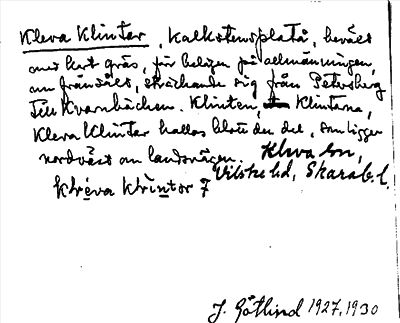 Kleva Klintar, Kalkstensplatå, beväxt
med kort gräs, för helgen på allmänningen,
om fränsåls, sträckande sig från Petersberg
till Kvarnbäcken. Klinten, Klintarna,
Kleva Klintar kallas blott den del, som ligger
nordväst om landsvägen. Kleva sn,
Vilske hd, Skarab. l.
Kléva klìntor 7
J. Götlind 1927, 1930